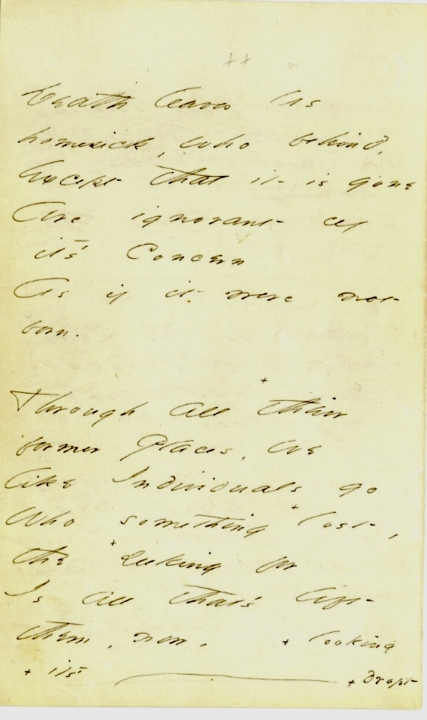 + +
Death leaves us
homesick, who behind,
Except that it is gone
Are ignorant of
it's Concern
As if it were not
born.
+
Through all their
former Places, we
like Individuals go
Who something + lost,
the + seeking for
Is all that's left
them, now. + looking
+ it's + dropt